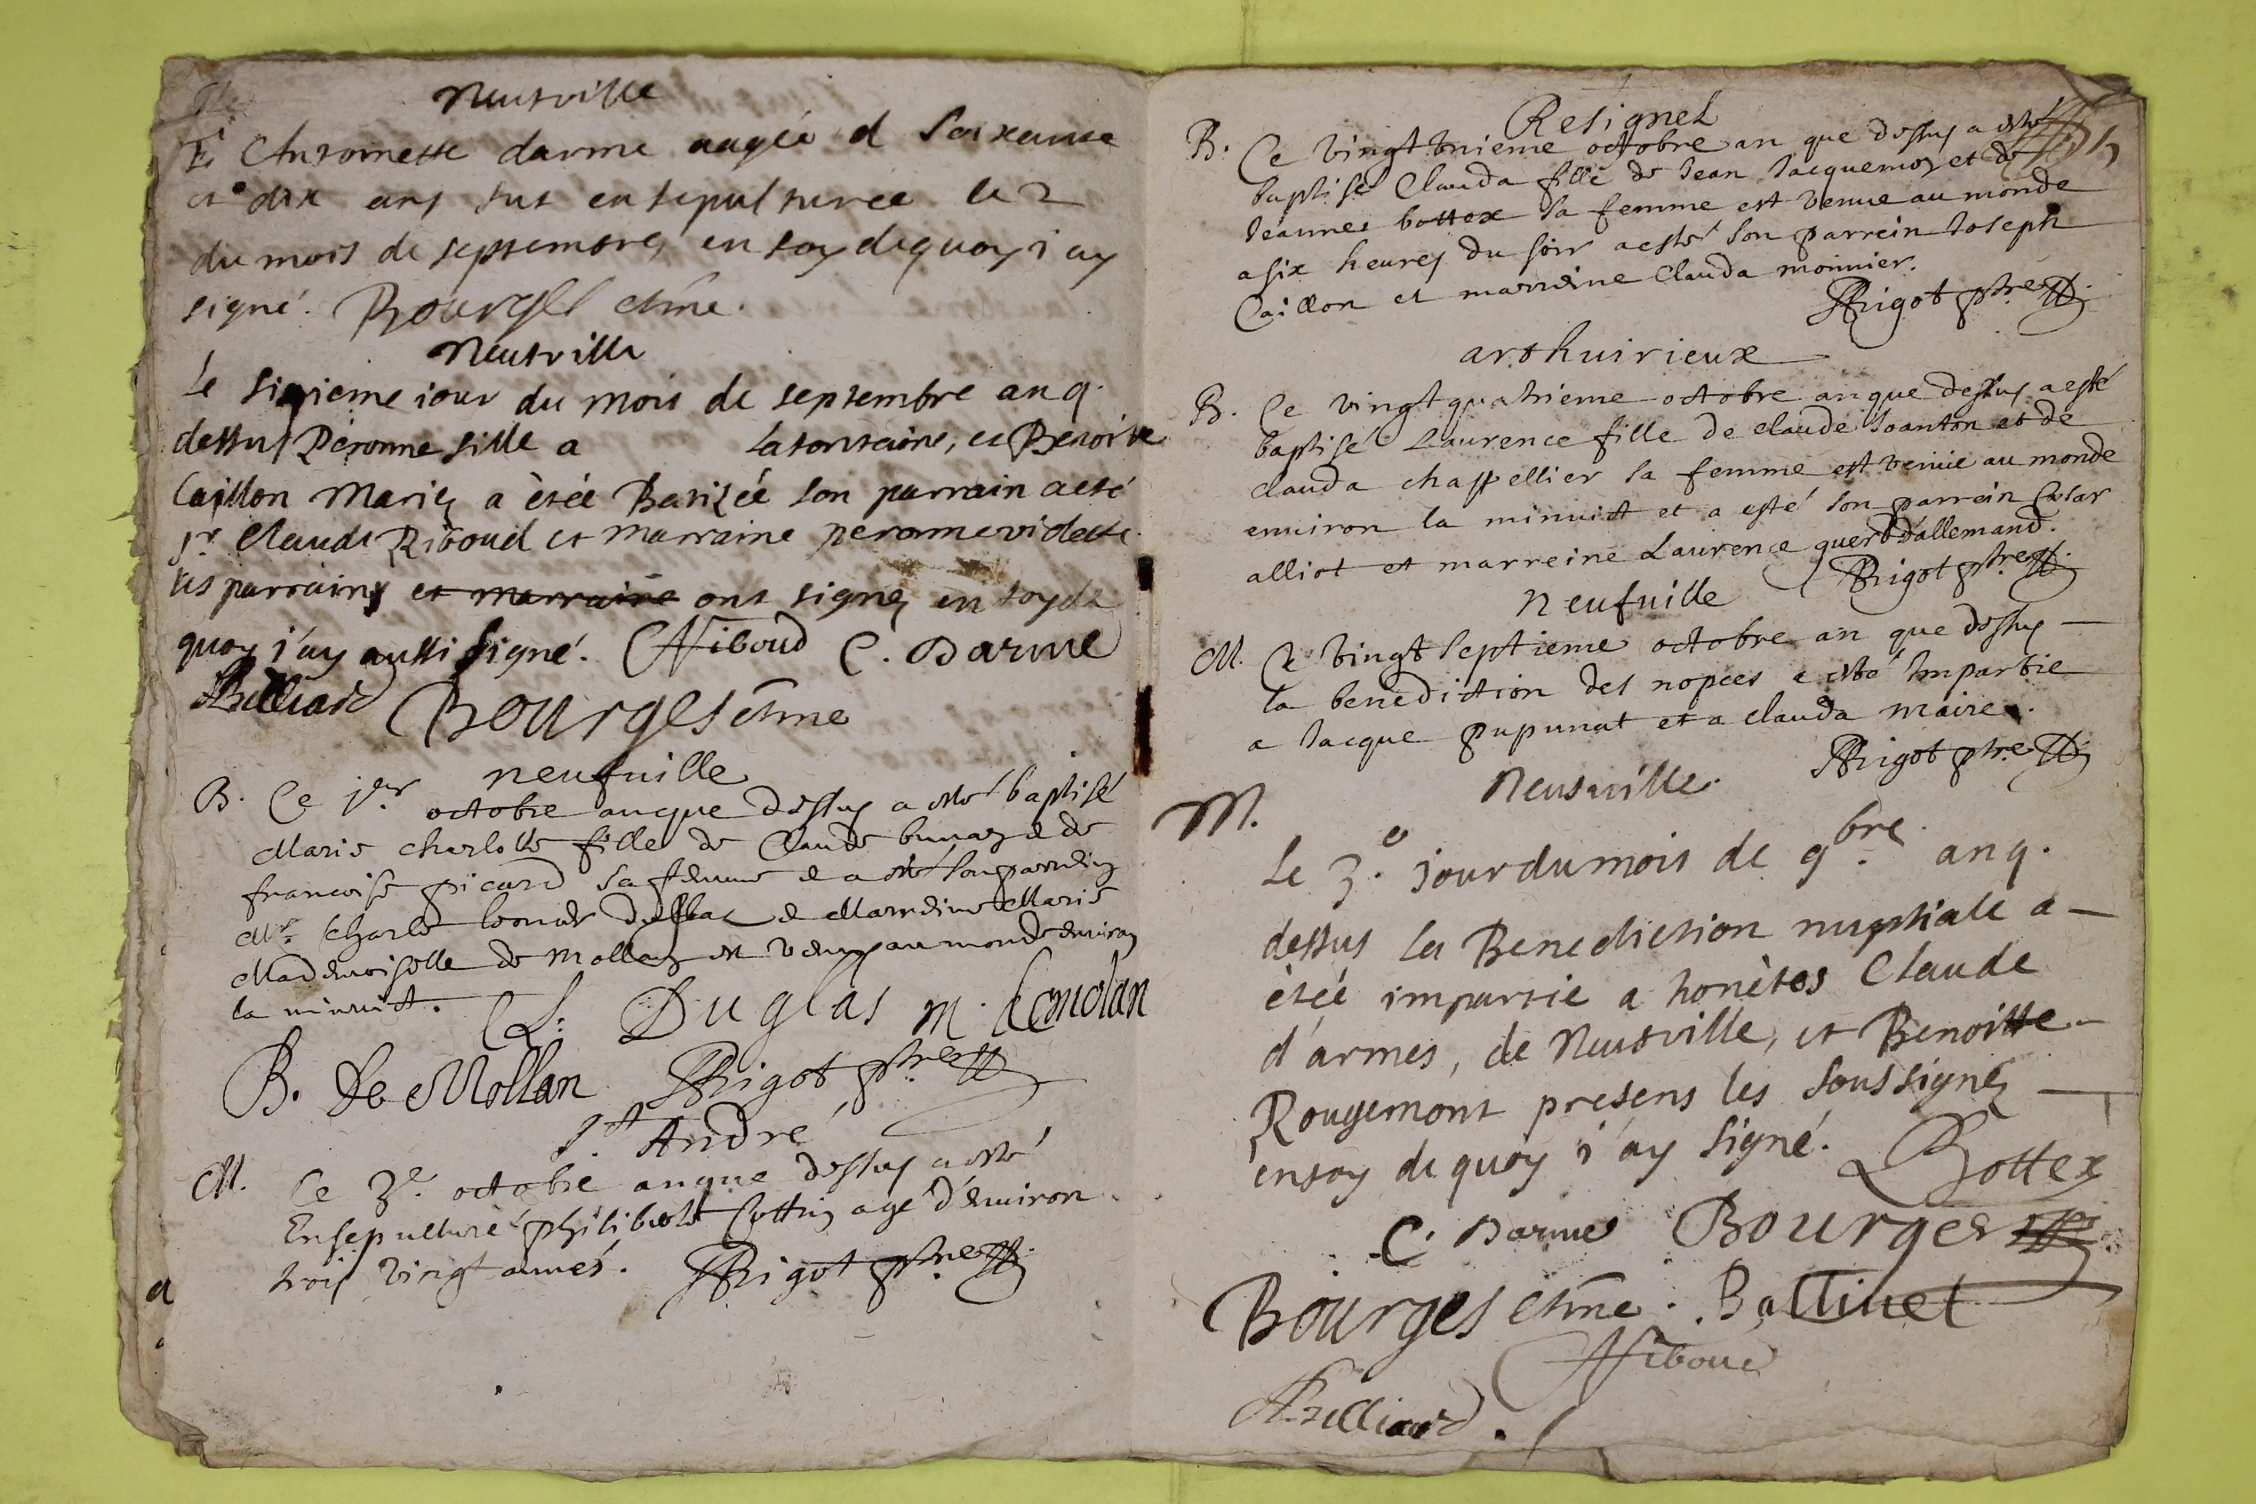 Neufville
E Anthoinette darme aagée d soixante
et dix ans fut ensepulturée le 2
du mois de septembre, en foy dequoy i ay
signé. Bourges cme.
Neufville
Le sixieme iour du mois de septembre an q.
dessus Peronne fille a lafontaine, et Benoite
Caillon Mariez a etée Batizée son parrain a eté
sr. Claude Riboud et marraine peronne vidette
les parrains et marraine ont signez en foy de
quoy i'ay aussi signé. Riboud C. Darme
Billiard Bourges cme
neufuille
B. Ce 1er octobre anque dessus a esté baptisé
Marie charlotte fille de Claude bunaz & de
francoise picard sa femme & a esté son parrein
Mr. Charle leonor duglas & Marreine Marie
Mademoiselle de mollan est venue au monde environ
la minuict. C L: Duglas m. demolan
B. De Mollan Rigot ptre
St. André
M. Ce 3e. octobre anque dessus a esté
Ensepulturé philibert Cottin agé d'environ
trois vingt années. Rigot ptre
Resignel
B. Ce vingt unieme octobre an que dessus a esté
baptisé Clauda fille de Jean Jacquemoz et de
Jeanne bottex sa femme est venue au monde
a six heures du soir a esté son parrein Joseph
Caillon et marreine Clauda monnier.
Rigot ptre
arthuirieux
B. Ce vingt quatrieme octobre an que dessus a esté
baptisé Laurence fille de claude Joanton et de
clauda chappellier sa femme est venue au monde
environ la minuict et a esté son parrein Cesar
alliot et marreine Laurence d'allemand.
Rigot ptre
Neufuille
M. Ce vingt septieme octobre an que dessus
la benediction des nopces a esté impartie
a Jacque pupunat et a clauda maire.
Rigot ptre
Neufville.
M.
Le 3.e jour du mois de 9bre. an q.
dessus la Benediction nuptiale a
etée impartie a honètes Claude
d'armes, de Neufville, et Benoitte
Rougemont presens les soussignez
enfoy de quoy i'ay signé. Bottex
C. Darme Bourges
Bourges cme. Battinet
Riboud
Billiard.